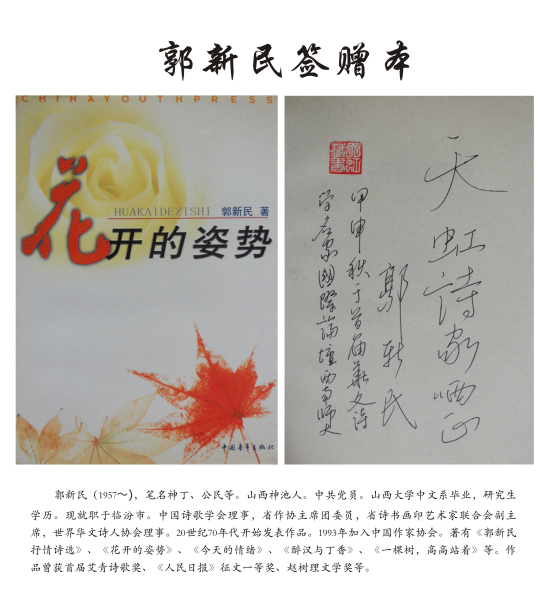 郭新民签赠本
CHINAYOUTHPRESS
HUAKAIDEZISHI 郭新民 著
花开的姿势
中国青年出版社
天虹詩家哂正
郭新民
甲申秋于首届華文诗
学名家國際論壇西南师大
郭新民（1957～），笔名神丁、公民等。山西神池人。中共党员。山西大学中文系毕业，研究生
学历。现就职于临汾市。中国诗歌学会理事，省作协主席团委员，省诗书画印艺术家联合会副主
席，世界华文诗人协会理事。20世纪70年代开始发表作品。1993年加入中国作家协会。著有《郭新民
抒情诗选》、《花开的姿势》、《今天的情绪》、《醉汉与丁香》、《一棵树，高高站着》等。作
品曾获首届艾青诗歌奖、《人民日报》征文一等奖、赵树理文学奖等。